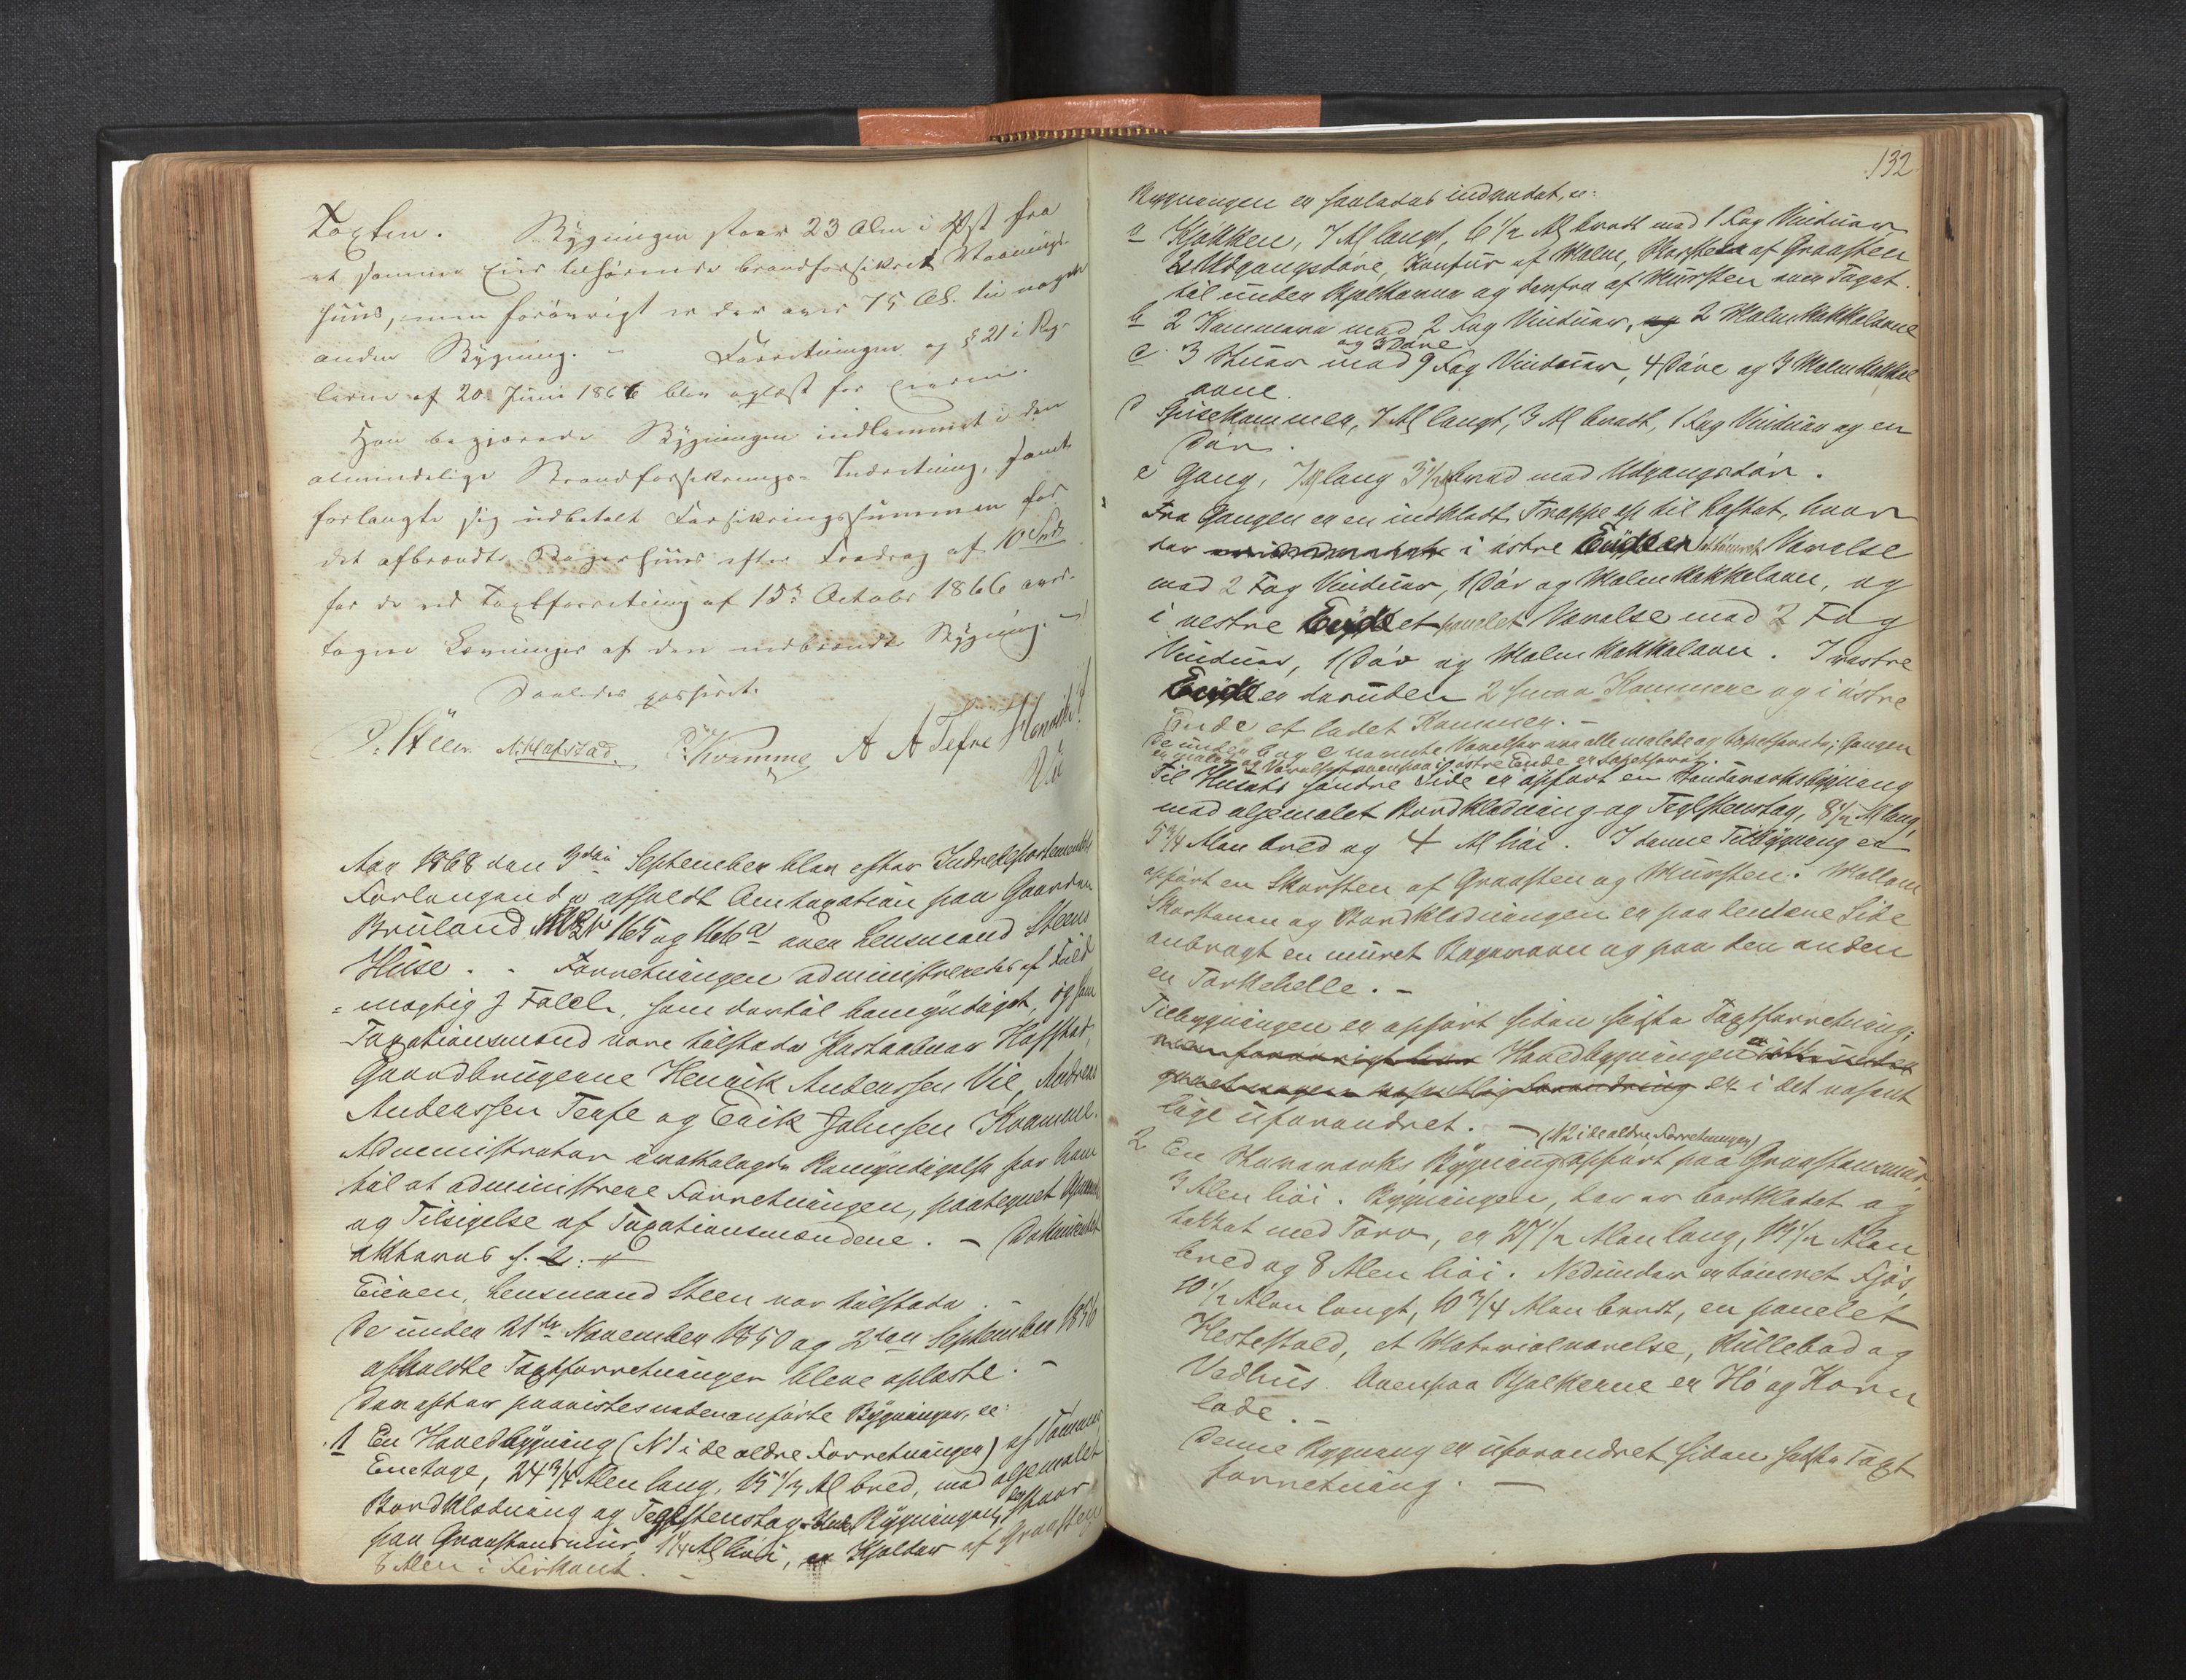 Taxten. Bygningen staar 23 Alen i Øst fra
et samme Eier tilhørende brandforsikret Vaanings-
huus, men forøvrigt er der over 75 Al. til nogen
anden Bygning. - Forretningen og § 21 i Reg-
lerne af 20 Juni 1866 blev oplæst for Eieren.
Han begjærede Bygningen indlemmet i den
almindelige Brandforsikrings-Indretning, samt
forlangte sig udbetalt Forsikringssummen for
det afbrændte huus efter Fradrag af 10 Spd
for de ved Taxtforretning af 15de October 1866 over-
tagne Levninger af den nedbrændte Bygning.
Saaledes passeret.
P. Steen N. Hafstad E. Kvamme A A Tefre Henrik
Vie
Aar 1868 den 3die September blev efter Indredepartementets
Forlangende afholdt Omtaxation paa Gaarden
Bruland 165 og 166a over Lensmand Steens
Huse. - Forretningen administreredes af Fuld
=mægtig J Falch, som dertil bemyndiget, og som
Taxationsmænd vare tilstede Hafstad,
Gaardbrugerne Henrik Andersen Vie, Andreas
Andersen Tefre og Erik Johnsen Kvamme.
Administrator fremlagde Bemyndigelse for ham
til at administrere Forretningen, paategnet
og Tilsigelse af Taxationsmændene. - Dokumentet
Eieren, Lensmand Steen var tilstede. -
De under 21de November 1850 og 2den September 1856
afholdte Taxtforretninger bleve oplæste. -
Derefter paavistes nedenanførte Bygninger, :
1 En Hovedbygning (N1 i de ældre Forretninger) af Tømmer
Enetage, 24 3/4 Alen lang, 15 1/2 Al bred, med oljemalet
Bordklædning og Teglstenstag. Under Bygningen, der staar
paa Graastensmuur, 1 1/4 Al høi, er Kjelder af Graasten
8 Alen i Firkant. -
132
Bygningen er saaledes indredet, :
a Kjøkken, 7 Al langt, 6 1/2 Al bredt med 1 Fag Vinduer,
2 Udgangsdøre, Komfur af Malm, Skorsten af Graasten
til under Bjelkerne og derfra af Mursten over Taget.
b 2 Kammere med 2 Fag Vinduer, og 2 Malmkakkelovne
og 3 Døre
c 3 Stuer med 9 Fag Vinduer, 4 Døre og 3 Malmkakkel
ovne.
d Spisekammer, 7 Al langt, 3 Al bredt, 1 Fag Vinduer og en
Dør.
e Gang, 7 Al lang 3 1/2 Al bred med Udgangsdør.
Fra Gangen er en indklædt Trappe op til Loftet, hvor
der i østre Ende er et tømret Værelse
med 2 Fag Vinduer, 1 Dør og Malmkakkelovn, og
i vestre Ende et panelet Værelse med 2 Fag
Vinduer, 1 Dør og Malmkakkelovn. I vestre
Ende er desuden 2 smaa Kammere og i østre
Ende et lidet Kammer. -
De under b og c nævnte Værelser ere alle malede og tapetserede; Gangen
er malet og Værelset ovenpaa i østre Ende er tapetseret.
Til Husets søndre Side er opført en Bindingsværksbygning
med oljemalet Bordklædning og Teglstenstag, 8 1/2 Al lang,
5 3/4 Alen bred og 4 Al høi. I denne Tilbygning er
opført en Skorsten af Graasten og Mursten. Mellem
Skorstenen og Bordklædningen er paa den ene Side
anbragt en muret Bagerovn og paa den anden
en Tørkehelle. -
Tilbygningen er opført siden sidste Taxtforretning;
men forøvrigt har Hovedbygningen
er i det væsent
lige uforandret. -
(N2 i de ældre Forretninger)
2 En Stavværks Bygning opført paa Graastensmuur,
3 Alen høi. Bygningen, der er bordklædt og
tækket med Torv, er 27 1/2 Alen lang, 14 1/2 Alen
bred og 8 Alen høi. Nedunder er tømret Fjøs,
10 1/2 Alen langt, 10 3/4 Alen bredt, en panelet
Hestestald, et Materialværelse, Rullebod og
Vedhus. Ovenpaa Bjelkerne er Hø og Korn
lade. -
Denne Bygning er uforandret siden sidste Taxt
forretning. -